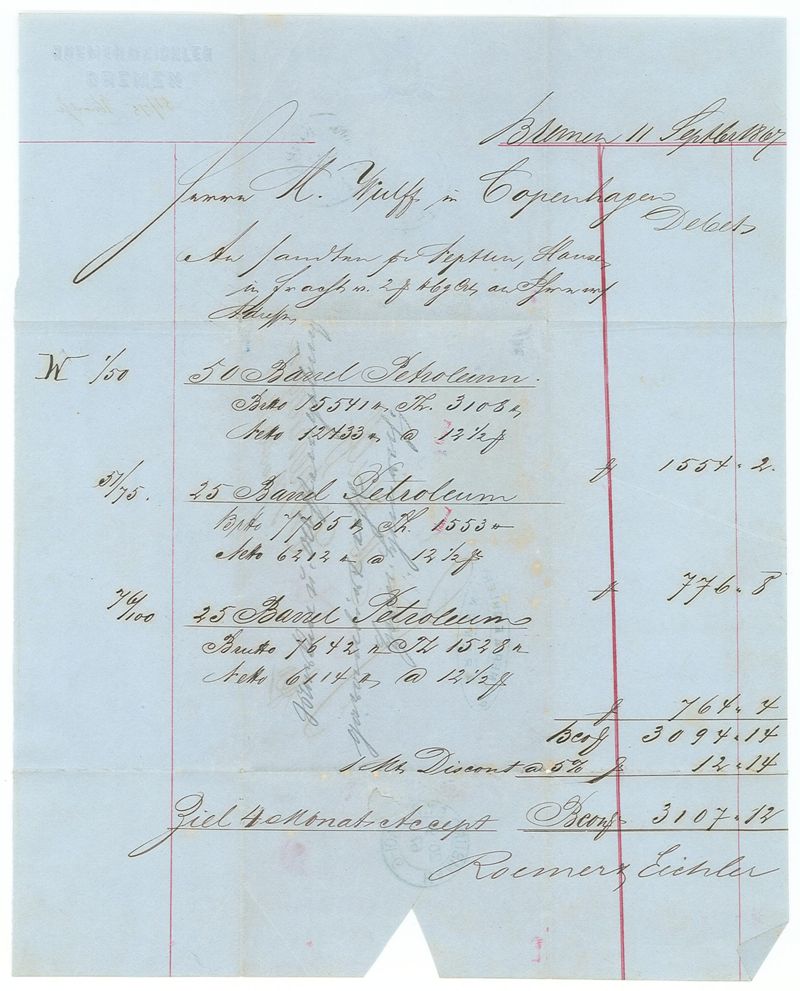 Bremen 11 Septber 1867
Herrn H. Wulff, in Copenhagen
Debet
An sandten pr Neptun, Hansen
in Fracht v. 2 an Ihre werthe
Adresse
W 1/50 50 Barrel Petroleum.
Btto 15541 Th. 3108
Netto 12433 @ 12½
1554 " 2.
51/75. 25 Barrel Petroleum
Btto 7765 Th. 1553
Netto 6212 @ 12½
776 " 8
76/100 25 Barrel Petroleum
Brutto 7642 Th 1528
Netto 6114 @ 12½
764 " 4
3094 " 14
1 Mt. Discont a 5% 12 " 14
Ziel 4 Monat Accept 3107 " 12
Roemer & Eichler